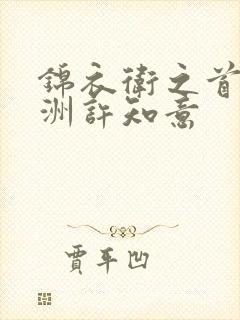 錦衣衛之首
洲許知意
賈平凹